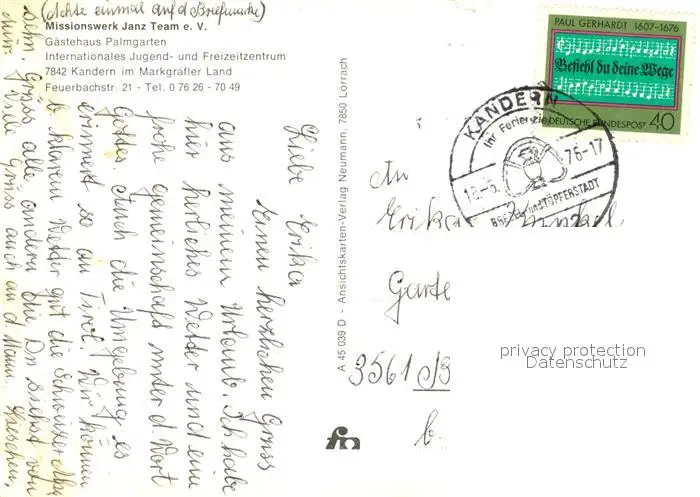 (Achte einmal auf d Briefmarke)
Missionswerk Janz Team e. V.
Gästehaus Palmgarten
Internationales Jugend- und Freizeitzentrum
7842 Kandern im Markgräfler Land
Feuerbachstr. 21 - Tel. 0 76 26 - 70 49
Liebe Erika
Einen herzlichen Gruss
aus meinem Urlaub. Ich habe
hier herliches Wetter und eine
frohe gemeinschaft unter d Wort
Gottes. Auch die Umgebung es
erinnert so an Tirol. Wir können
b klarem Wetter gut die Schweizer Alp.
sehn. Grüss alle andern die Du siehst von
mir. Viele Grüss auch an d. Mann.
A 45 039 D - Ansichtskarten-Verlag Neumann, 7850 Lörrach
PAUL GERHARDT 1607-1676
Befiehl du deine Wege
DEUTSCHE BUNDESPOST 40
KANDERN
Ihr Ferienziel
76-17
BREZEL- und TÖPFERSTADT
An
Erika
Garte
3561
b.
privacy protection
Datenschutz